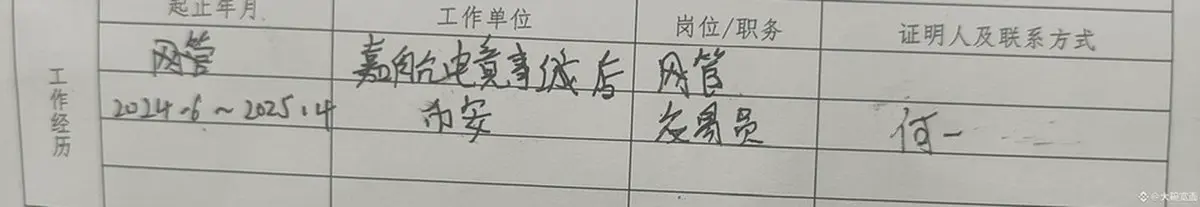 起止年月 工作单位 岗位/职务 证明人及联系方式
工作经历
网管 嘉船电竞 网管
2024.6~2025.4 币安 交易员 何一